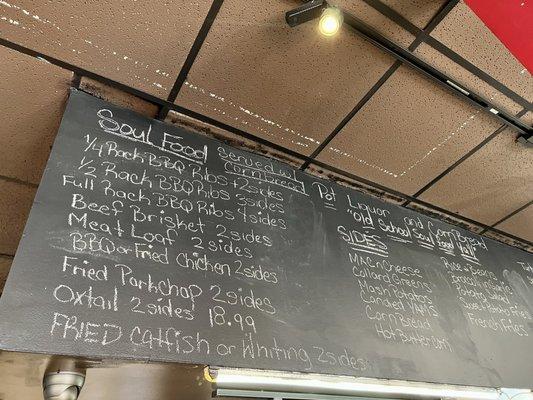 Soul Food Served w/ Cornbread
1/4 Rack BBQ Ribs + 2 sides
1/2 Rack BBQ Ribs 3 sides
Full Rack BBQ Ribs 4 sides
Beef Brisket 2 sides
Meat Loaf 2 sides
BBQ or Fried Chicken 2 sides
Fried Porkchop 2 sides
Oxtail 2 sides 18.99
FRIED Catfish or Whiting 2 sides
Pot Liquor and CornBread
"Old School Soul Food
SIDES
MAC n Cheese
Collard Greens
Mash Potatoes
Candied Yams
Corn Bread
Hot Butter Corn
Rice + Beans
Broccoli
Potato Salad
Sweet Potato Fries
French Fries